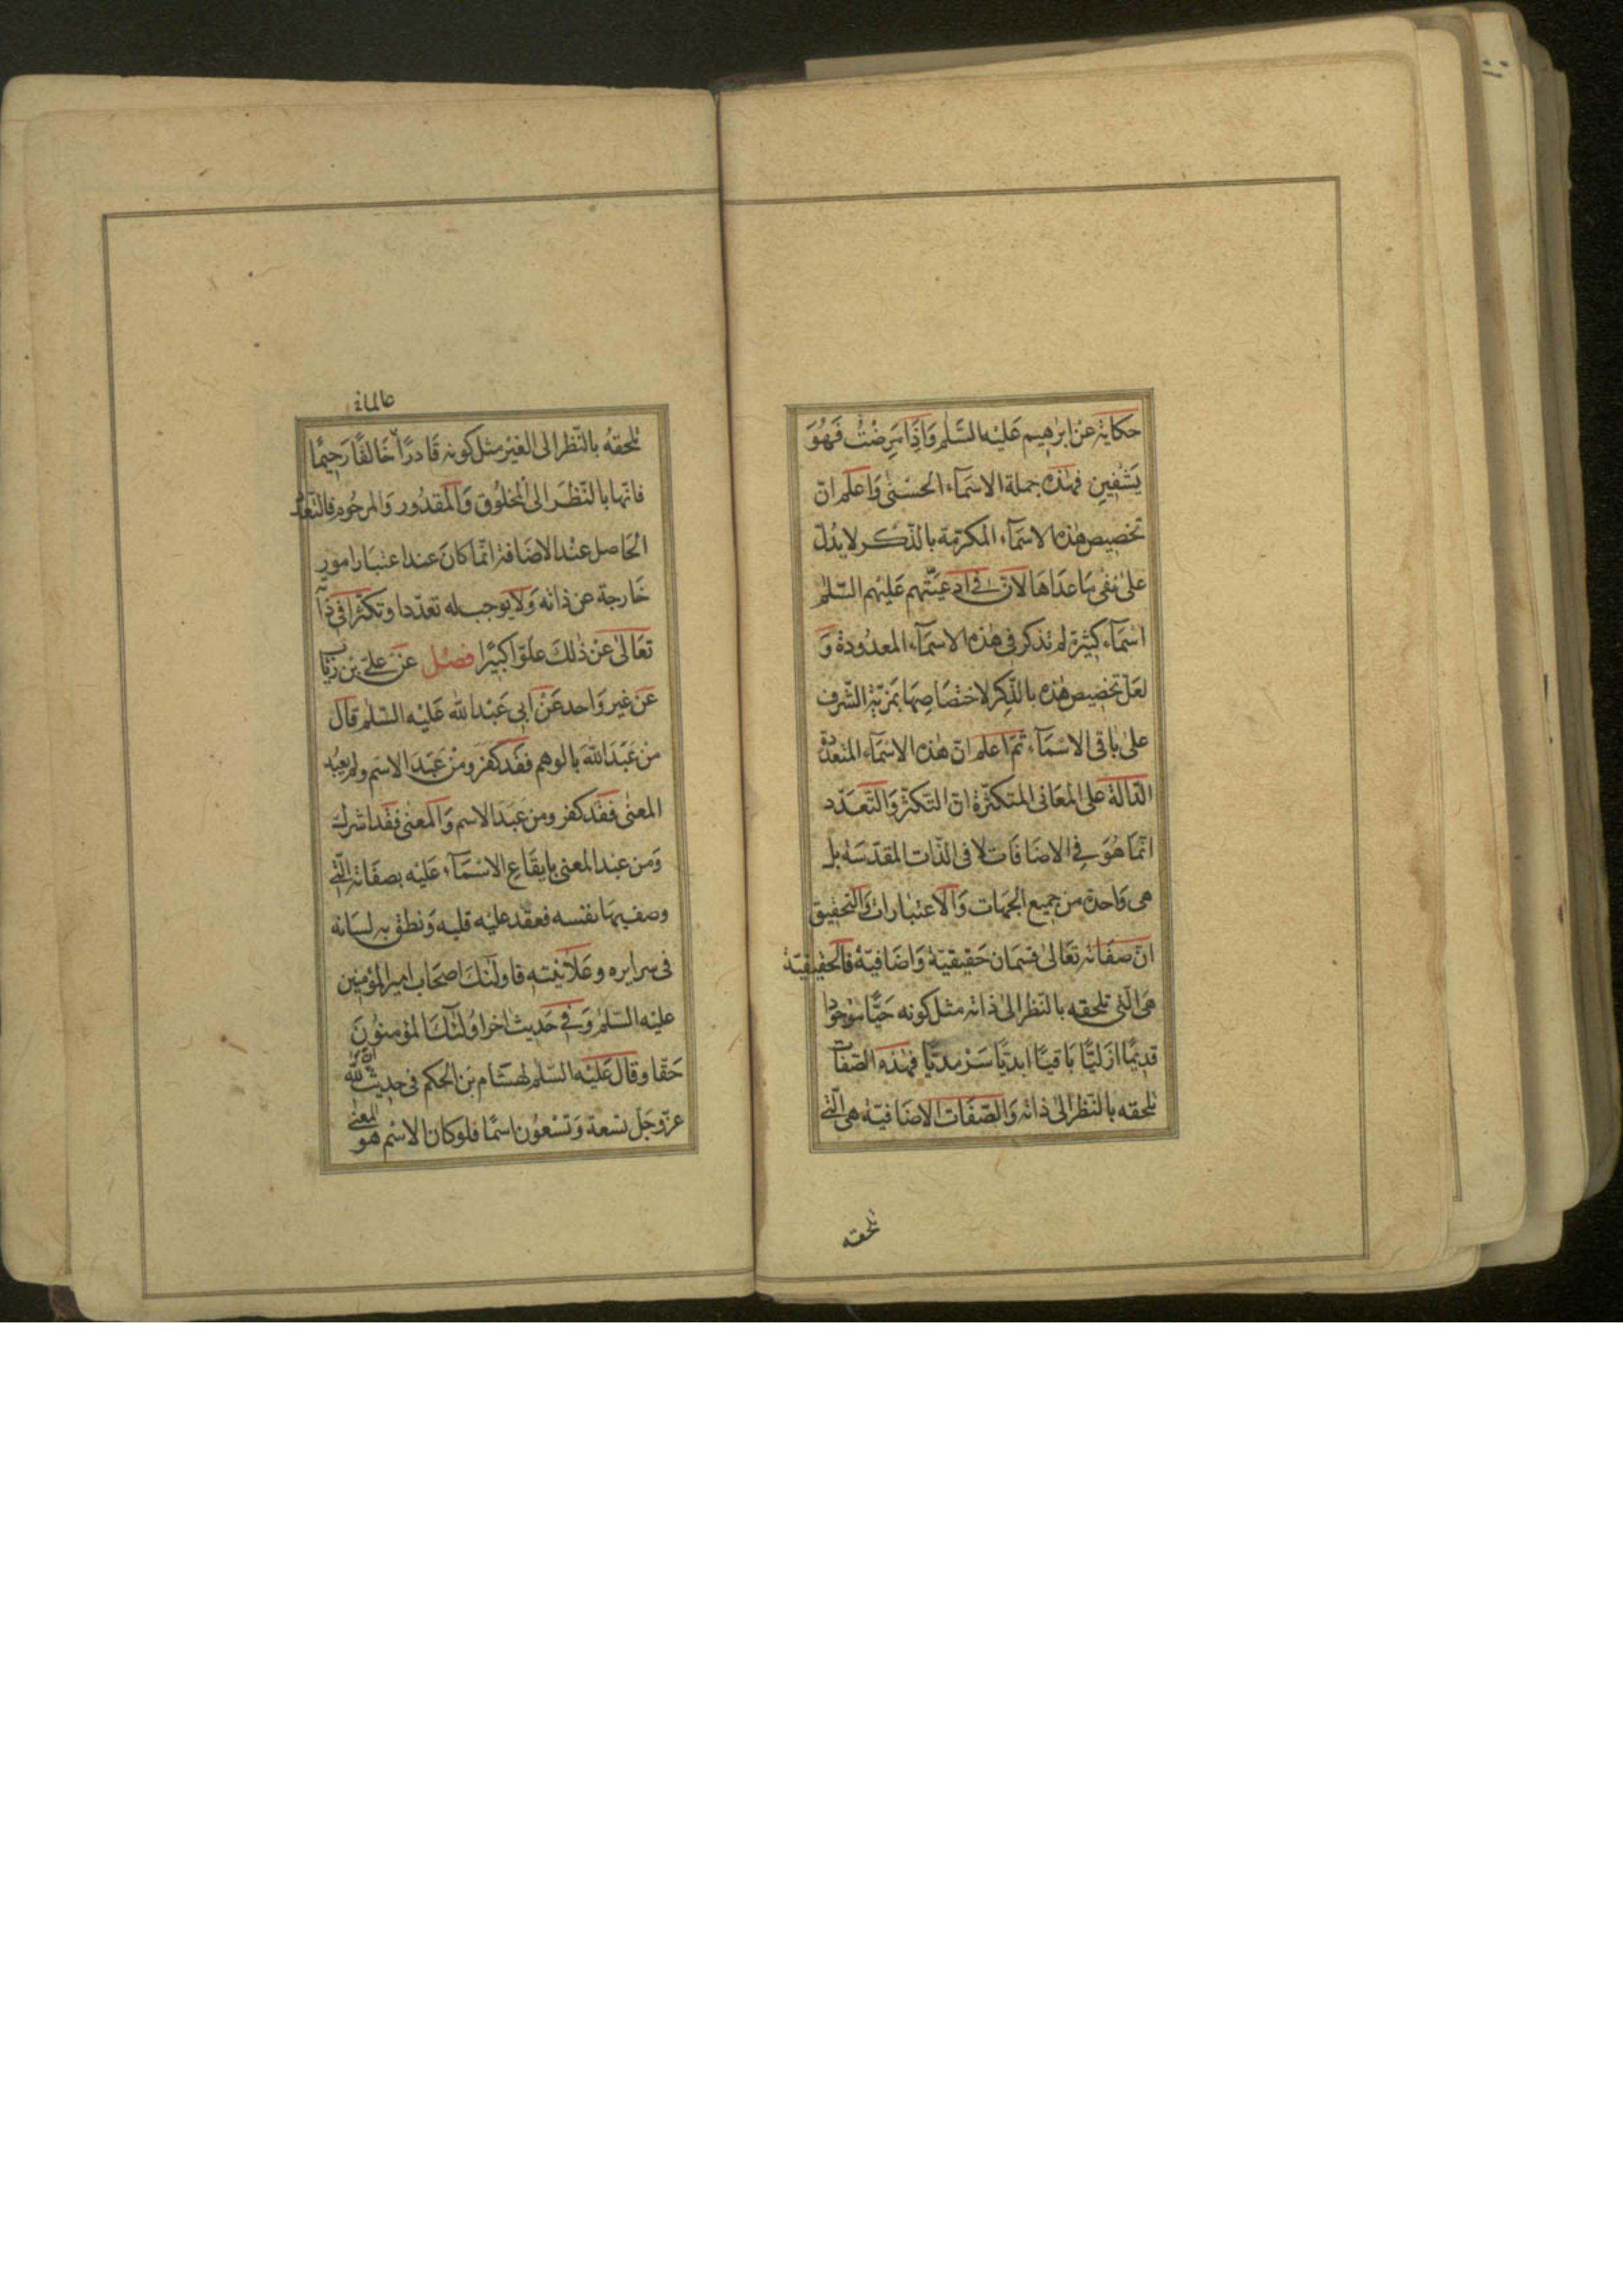 حكاية عن ابرٰهيم عَليْه السَّلٰم وَاِذَا مَرِضْتُ فَهُوَ
يَشْفِينِ فهٰذه جملة الاسمَآء الحُسْنىٰ وَاعلم انّ
تخصيص هٰذه الاسمَآء المكرّمة بالذّكر لا يدُلّ
علىٰ نفى مَا عدَاهَا لانّ فى ادعيَتهم عَليْهم السّلٰم
اسْمَآء كثيرَة لم تذكر فى هٰذه الاسمَآء المعدُودة وَ
لعَلّ تخصِيص هٰذه بالذّكر لاختصَاصِهَا بمَزيّة الشّرف
علىٰ باقى الاسْمَآء ثمّ اعلم انّ هٰذه الاسْمَآء المتعدّدة
الدّالة على المعَانى المتكثّرة انّ التّكثّر وَالتّعَدّد
انّمَا هُوَ فى الاضَافَات لا فى الذّات المقدّسَة بل
هى وَاحدة من جميع الجهَات وَالاعتبَارات وَالتحقيق
انّ صفَاته تعَالىٰ قسمَان حَقيقيّة وَاضَافيّة فالحقيقيّة
هى الّتى تلحقه بالنّظر الىٰ ذاته مثل كونه حَيًّا موجُودا
قديمًا ازليًّا بَاقيًا ابديًّا سَرْمديًّا فهٰذه الصّفات
تلحقه بالنّظر الىٰ ذاته وَالصّفَات الاضَافيّة هى الّتى
تلحقه
عالما
تلحقهُ بالنّظر الى الغيْر مثل كونه قَادرًا خَالقًا رَحيمًا
فانّها بالنّظَر الى المخلُوق وَالمقدُور وَالمرحُوم فالتّعدّد
الحَاصل عنْد الاضَافة انّما كانَ عند اعتبَار امُور
خَارجة عن ذاته وَلا يوجب له تعدّدا وتكثّرا فى ذاته
تعَالىٰ عَنْ ذٰلكَ علوًّا كبيْرًا فصْل عَنْ علىّ بْن رئاب
عَن غير وَاحد عَنْ ابى عَبْد الله عَليْه السّلٰم قال
منْ عَبَدَ اللهَ بالوهم فقَد كفَر ومنْ عَبَدَ الاسم ولم يعبُد
المعنٰى فقَد كفر ومن عَبَدَ الاسم وَالمعنٰى فقد اشرك
وَمن عبد المعنى بايقَاع الاسْمَآء عَليْه بصفَاته الّتى
وصف بهَا نفسه فعقد عليْه قلبه وَنطق به لسَانه
فى سرايره وعَلانيته فاولٰئكَ اصحَاب امير المؤمنين
عليْه السّلٰمُ وَفى حَديث اخر اولٰئكَ المؤمنُونَ
حَقّا وقال عَليْه السّلٰم لهشَام بن الحكم فى حديث انّ لله
عزّ وجَلّ تسعة وَتسْعُون اسمًا فلو كان الاسْم هو المعنٰى